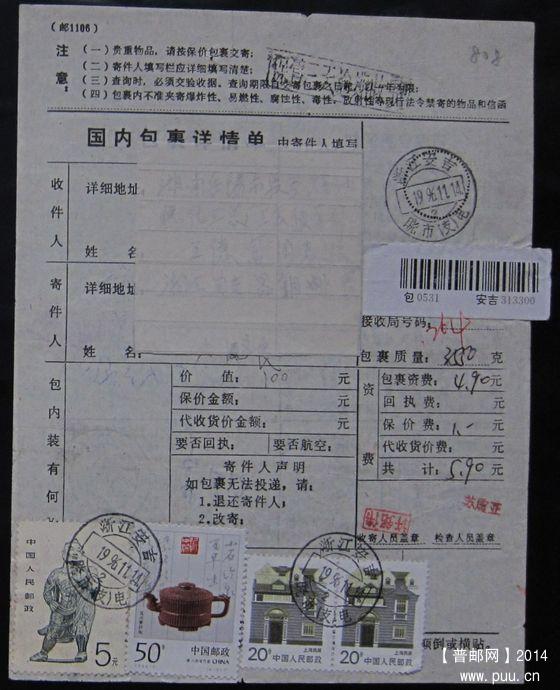 (邮1106)
注意：
(一)贵重物品，请按保价包裹交寄；
(二)寄件人填写栏应详细填写清楚；
(三)查询时，必须交验收据。查询期限自交寄包裹之日起，以一年有限；
(四)包裹内不准夹寄爆炸性、易燃性、腐蚀性、毒性、放射性等现行法令禁寄的物品和信函
808
国内包裹详情单
由寄件人填写
浙江安吉
1996.11.14
收件人
详细地址
姓 名
寄件人
详细地址
姓 名
包0531 安吉313300
接收局号码：
包裹质量：3550克
包内装有何
价 值：100 元
保价金额： 元
代收货价金额： 元
要否回执： 要否航空：
寄件人声明
如包裹无法投递，请：
1.退还寄件人；
2.改寄：
资费
包裹资费：4.90元
回执费： 元
保价费：1.- 元
代收货价费： 元
共 计：5.90元
收寄人员盖章 检查人员盖章
浙江安吉
1996.11.14
浙江安吉
1996.11.14
中国人民邮政
5元
50分
中国邮政
CHINA
20分
上海民居
中国人民邮政
20分
上海民居
中国人民邮政
倒或横贴。
【普邮网】2014
www.puu.cn